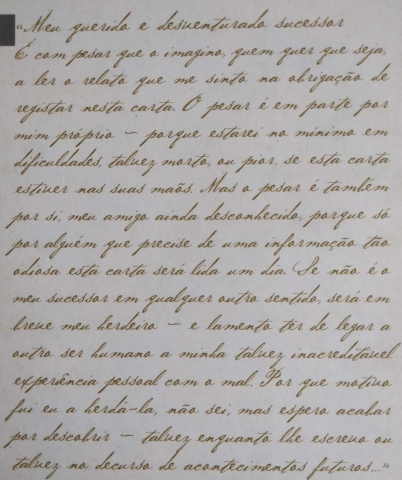 «Meu querido e desventurado sucessor
É com pesar que o imagino, quem quer que seja,
a ler o relato que me sinto na obrigação de
registar nesta carta. O pesar é em parte por
mim próprio — porque estarei no mínimo em
dificuldades, talvez morto, ou pior, se esta carta
estiver nas suas maõs. Mas o pesar é também
por si, meu amigo ainda desconhecido, porque só
por alguém que precise de uma informação tão
odiosa esta carta será lida um dia. Se não é o
meu sucessor em qualquer outro sentido, será em
breve meu herdeiro — e lamento ter de legar a
outro ser humano a minha talvez inacreditável
experiência pessoal com o mal. Por que motivo
fui eu a herdá-la, não sei, mas espero acabar
por descobrir — talvez enquanto lhe escrevo ou
talvez no decurso de acontecimentos futuros...»